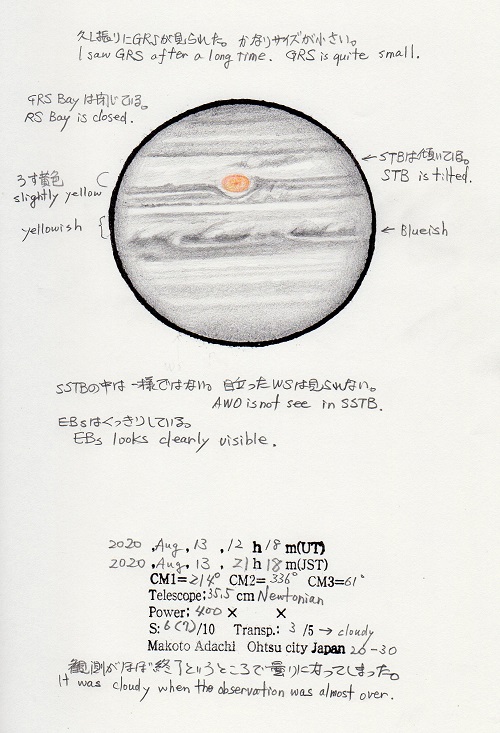 久し振りにGRSが見られた。かなりサイズが小さい。
I saw GRS after a long time. GRS is quite small.
GRS Bay は閉じている。
RS Bay is closed.
← STBは傾いている。
STB is tilted.
うす黄色
slightly yellow
yellowish
← Blueish
SSTBの中は一様ではない。目立ったWSは見られない。
AWO is not see in SSTB.
EBsはくっきりしている。
EBs looks clearly visible.
2020 ,Aug, 13 ,12 h 18 m(UT)
2020 ,Aug, 13 , 21 h 18 m(JST)
CM1= 214° CM2= 336° CM3= 61°
Telescope; 35.5 cm Newtonian
Power; 400 × ×
S: 6(7)/10 Transp.: 3 /5 → cloudy
Makoto Adachi Ohtsu city Japan 26-30
観測がほぼ終了というところで曇りになってしまった。
It was cloudy when the observation was almost over.